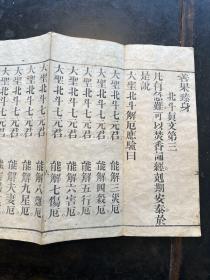 善果臻身
北斗真文第三
凡有急難可以焚香誦經剋期安泰於
是說
大聖北斗解厄應驗曰
大聖北斗七元君 能解三災厄
大聖北斗七元君 能解四殺厄
大聖北斗七元君 能解五行厄
大聖北斗七元君 能解六害厄
大聖北斗七元君 能解七傷厄
大聖北斗七元君 能解八難厄
大聖北斗七元君 能解九星厄
大聖北斗七元君 能解夫妻厄